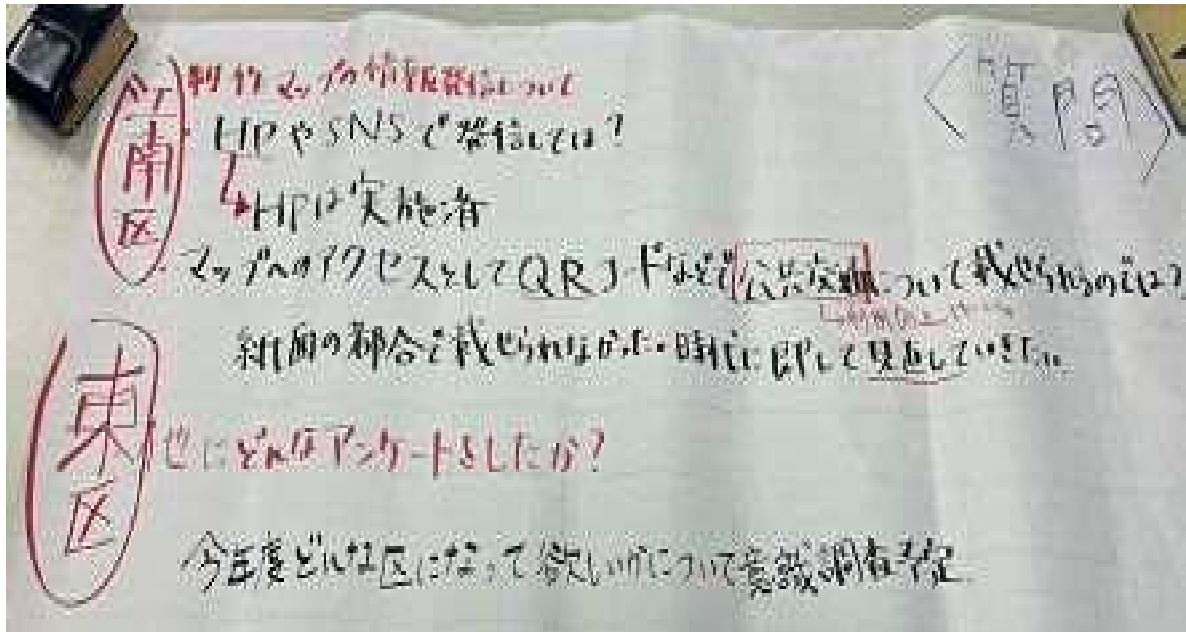 〈質問〉
江南区
マップの情報発信について
・HPやSNSで発信しては?
↳HPは実施済
・マップへのアクセスとしてQRコードなどで公共交通について載せられるのでは?
紙面の都合で載せられなかった・時代に即して見直していきたい
東区
他にどんなアンケートをしたか?
今年度どんな区になって欲しいかについて意識調査予定